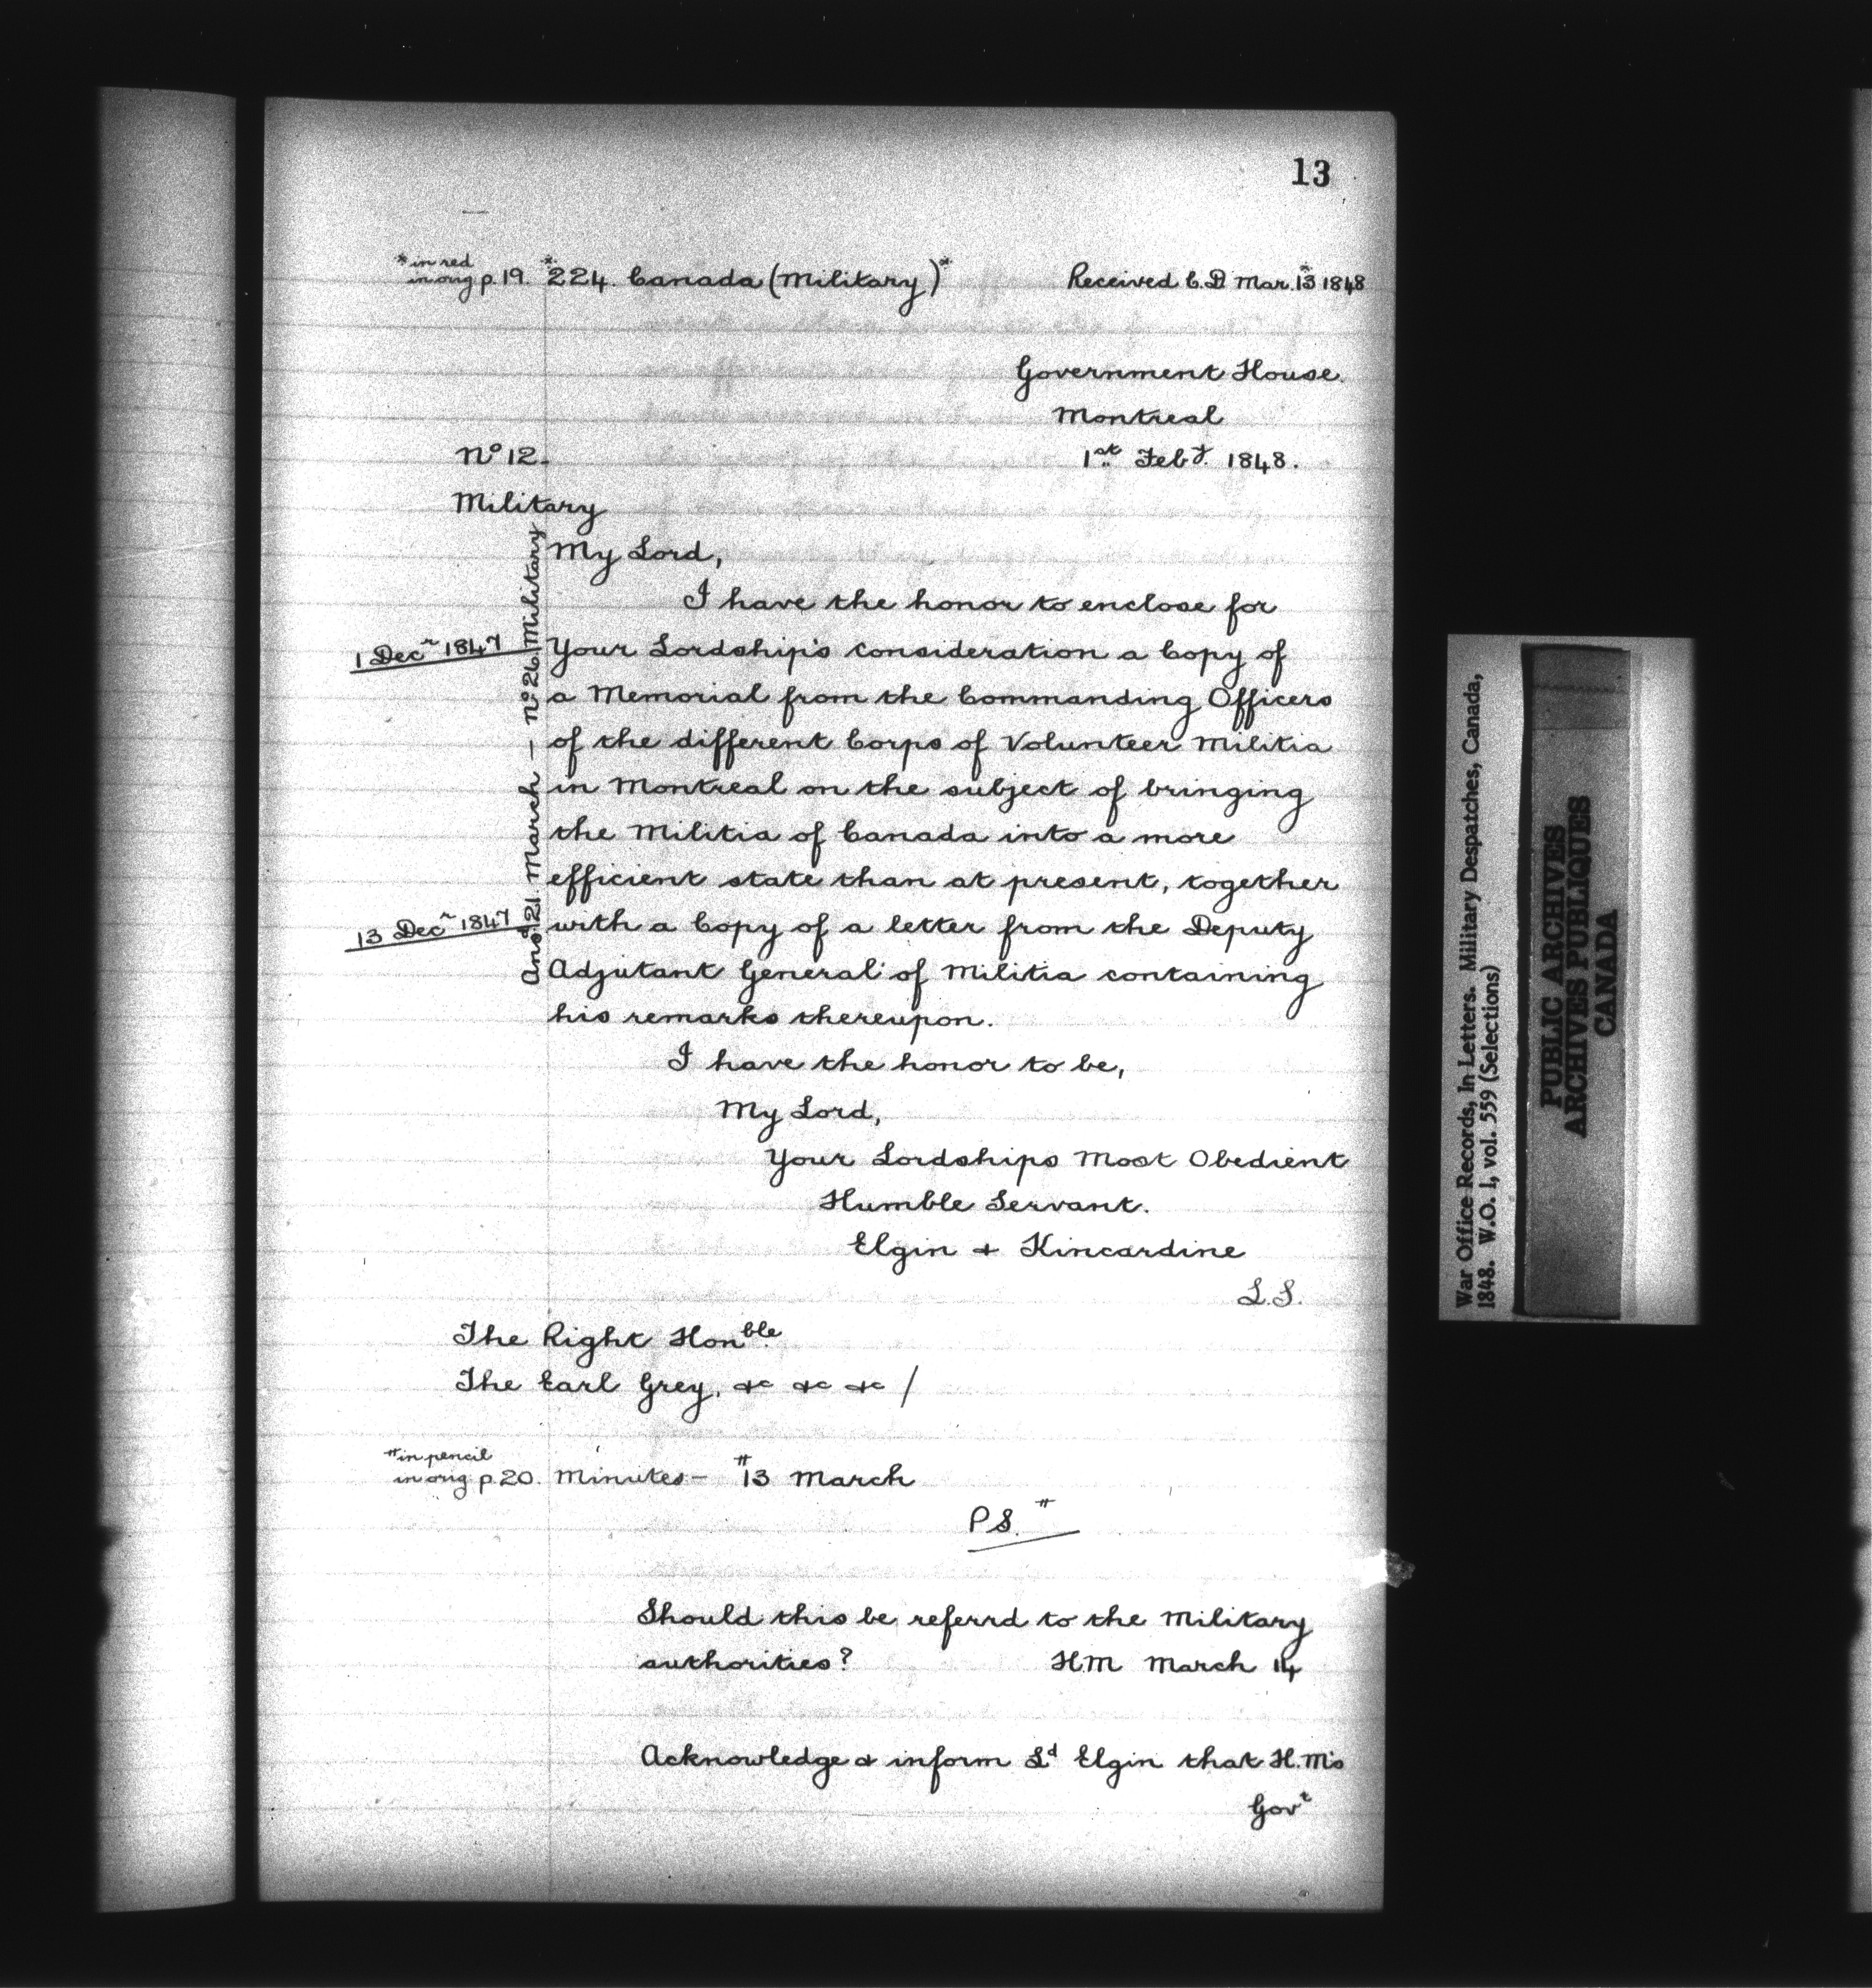 13
*in red
in orig p.19. *224. Canada (Military)* Received C.D. Mar. 13 1848
Government House.
Montreal
No 12. 1st Feby. 1848.
Military
My Lord,
I have the honor to enclose for
1 Decr 1847 Your Lordship's consideration a Copy of
a Memorial from the Commanding Officers
of the different Corps of Volunteer Militia
in Montreal on the subject of bringing
the Militia of Canada into a more
efficient state than at present, together
13 Decr 1847 with a Copy of a letter from the Deputy
Adjutant General of Militia containing
his remarks thereupon.
Ansd. 21 March — No 26 Military
I have the honor to be,
My Lord,
Your Lordships Most Obedient
Humble Servant.
Elgin & Kincardine
L.S.
The Right Honble.
The Earl Grey, &c &c &c /
#in pencil
in orig p.20. Minutes – #13 March
P.S.#
Should this be referrd to the Military
authorities? H.M March 14
Acknowledge & inform Ld Elgin that H.M's
Govt
War Office Records, In Letters. Military Despatches, Canada,
1848. W.O. 1, vol. 559 (Selections)
PUBLIC ARCHIVES
ARCHIVES PUBLIQUES
CANADA